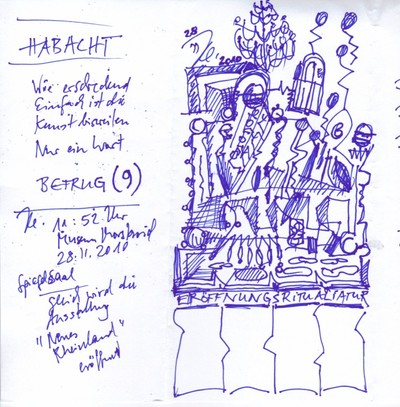 HABACHT
Wie erschreckend
Einfach ist die
Kunst bisweilen
Nur ein Wort
BETRUG (9)
11:52 Uhr
Museum Morsbroich
28.11.2010
Spiegelsaal
gleich wird die
Ausstellung
"Neues
Rheinland"
eröffnet
28
11
2010
ERÖFFNUNGSRITUALIATUR